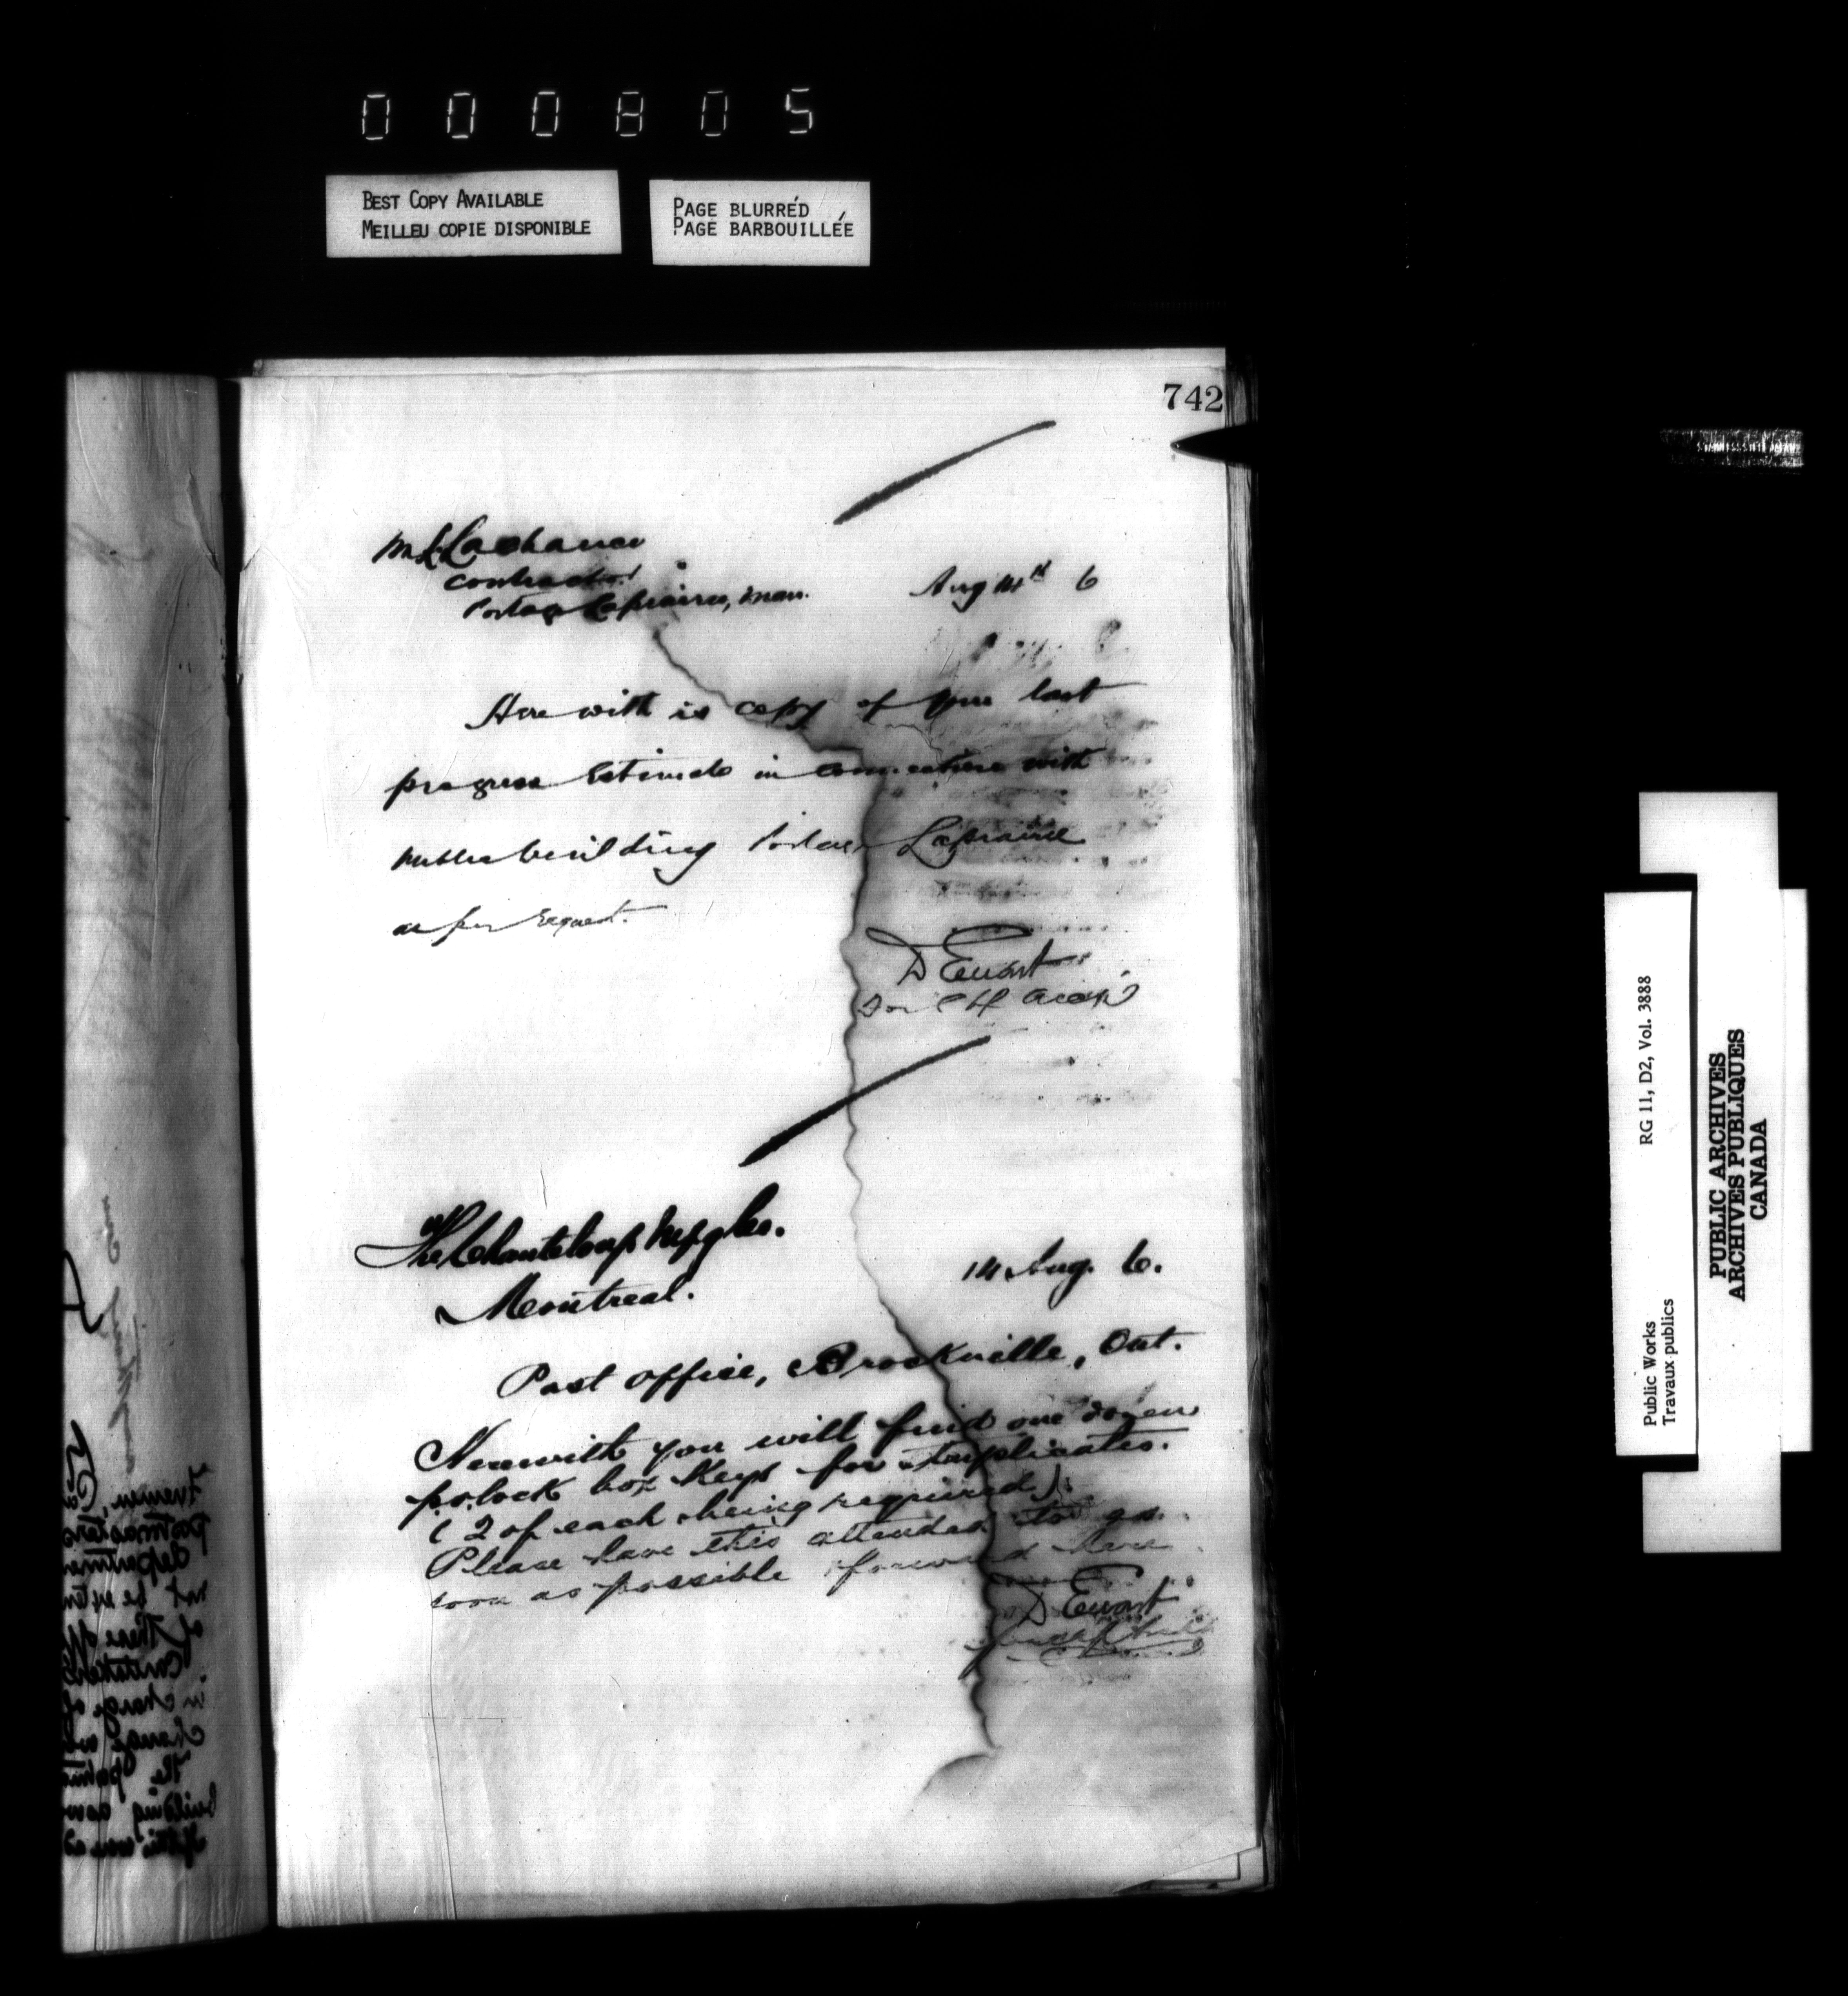 000805
BEST COPY AVAILABLE
MEILLEU COPIE DISPONIBLE
PAGE BLURRÉD
PAGE BARBOUILLÉE
742
Lachance
contractor
Portage Laprairie, Man.
Aug 14th 6
Herewith is copy of your last
progress estimate in connection with
public building Portage Laprairie
as per request.
D Ewart
The Chanteloup Mfg Co.
Montreal.
14 Aug. 6.
Post Office, Brockville, Ont.
Herewith you will find one dozen
p.o. lock box keys for triplicates.
(2 of each being required).
Please have this attended to as
soon as possible & forward here
D Ewart
RG 11, D2, Vol. 3888
Public Works
Travaux publics
PUBLIC ARCHIVES
ARCHIVES PUBLIQUES
CANADA